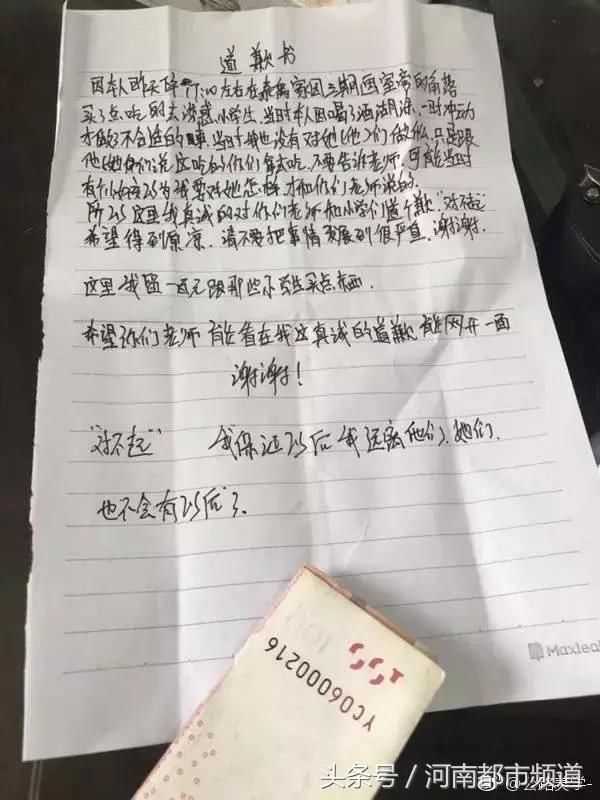 道歉书
因本人昨天下午7:00左右在嘉禹家园三期画室旁的角落
买了点吃的去诱惑小学生,当时本人因喝了酒胡涂,一时冲动
才做了不合适的事,当时我也没有对她(他)们做什么,只是跟
他(她)们说这吃的你们拿去吃,不要告诉老师,可能当时
有个小女孩以为我要对她怎样才和你们老师说的.
所以这里我真诚的对你们老师和小学们道个歉"对不起"
希望得到原凉,请不要把事情发展到很严重,谢谢.
这里我留一百元跟那些小学生买点东西.
希望你们老师能看在我这真诚的道歉能网开一面
谢谢!
"对不起" 我保证以后我远离他们、她们.
也不会有以后了.
YC06000216
Maxleaf
头条号/河南都市频道
@公路美学